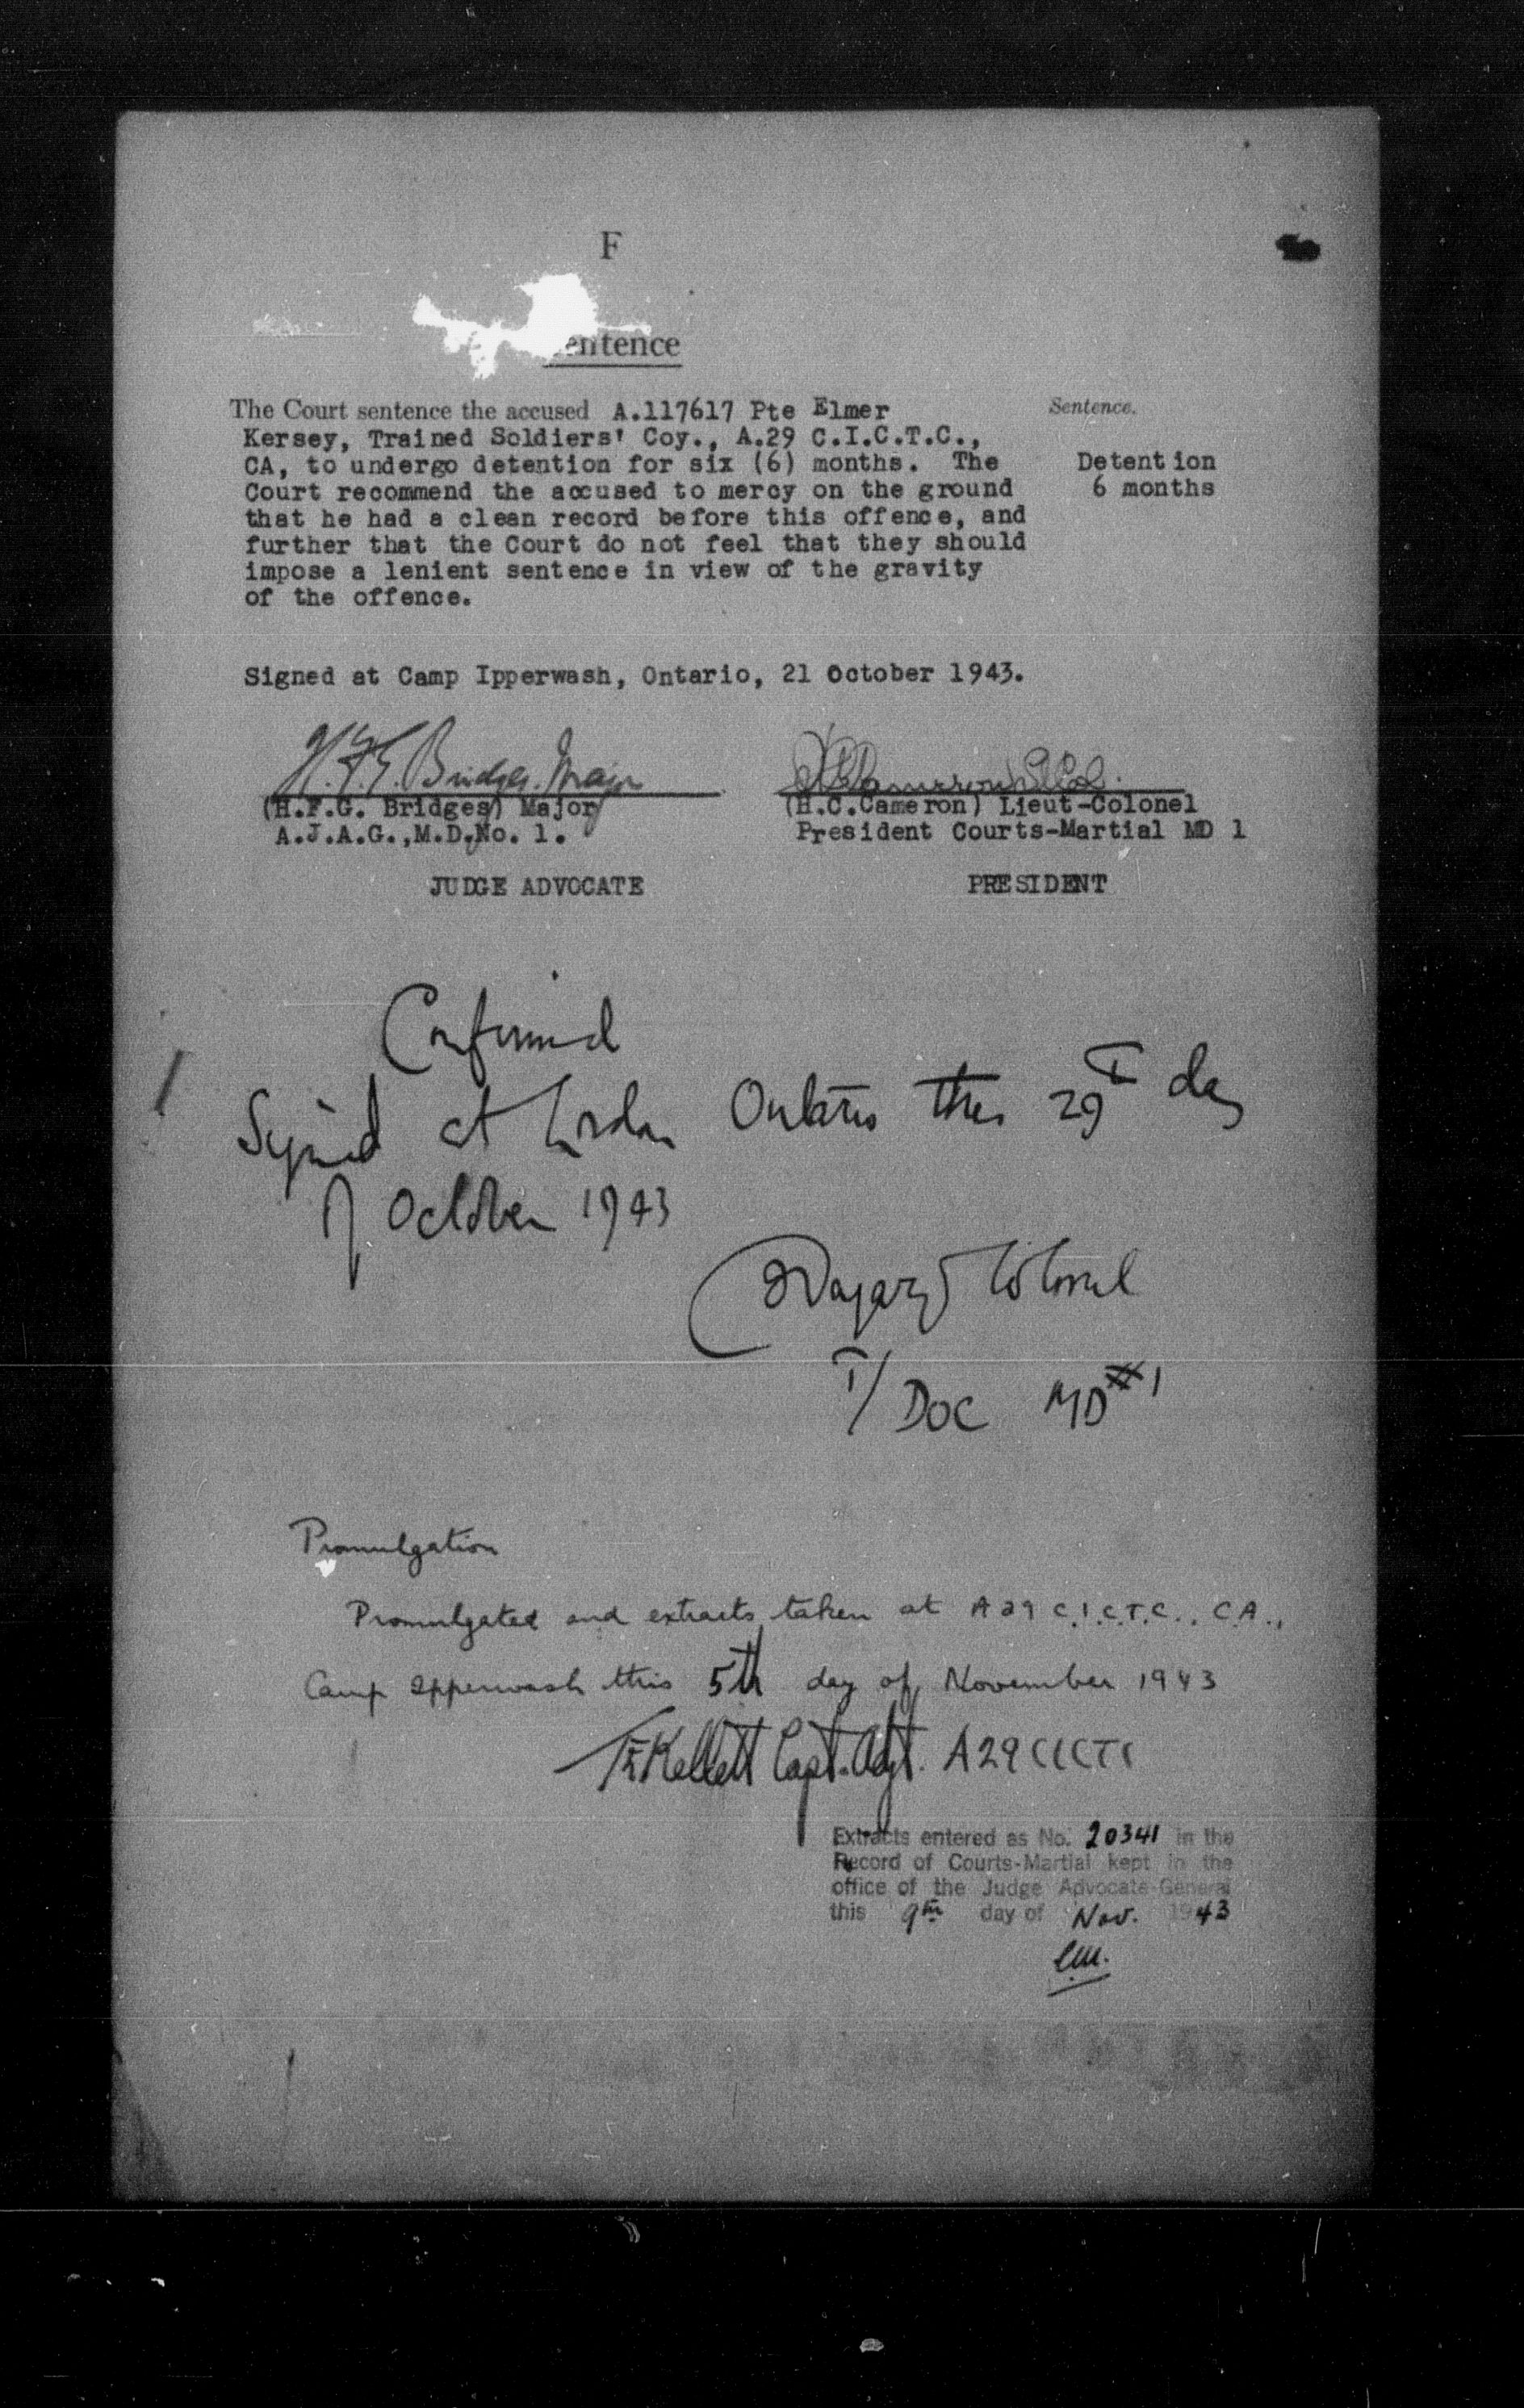 F
entence
The Court sentence the accused A.117617 Pte Elmer
Sentence.
Kersey, Trained Soldiers' Coy., A.29 C.I.C.T.C.,
CA, to undergo detention for six (6) months. The
Detention
Court recommend the accused to mercy on the ground
6 months
that he had a clean record before this offence, and
further that the Court do not feel that they should
impose a lenient sentence in view of the gravity
of the offence.
Signed at Camp Ipperwash, Ontario, 21 October 1943.
H.F.G. Bridges. Major
(H.F.G. Bridges) Major
A.J.A.G.,M.D.No. 1.
JUDGE ADVOCATE
HCCameron Lt Col.
(H.C.Cameron) Lieut-Colonel
President Courts-Martial MD 1
PRESIDENT
Confirmed
Signed at London Ontario this 29th day
of October 1943
Colonel
T/ DOC MD #1
Promulgation
Promulgated and extracts taken at A29 C.I.C.T.C., C.A.,
Camp Ipperwash this 5th day of November 1943
Kellett Capt. Adjt. A29 CICTC
Extracts entered as No. 20341 in the
Record of Courts-Martial kept in the
office of the Judge Advocate-General
this 9th day of Nov. 1943